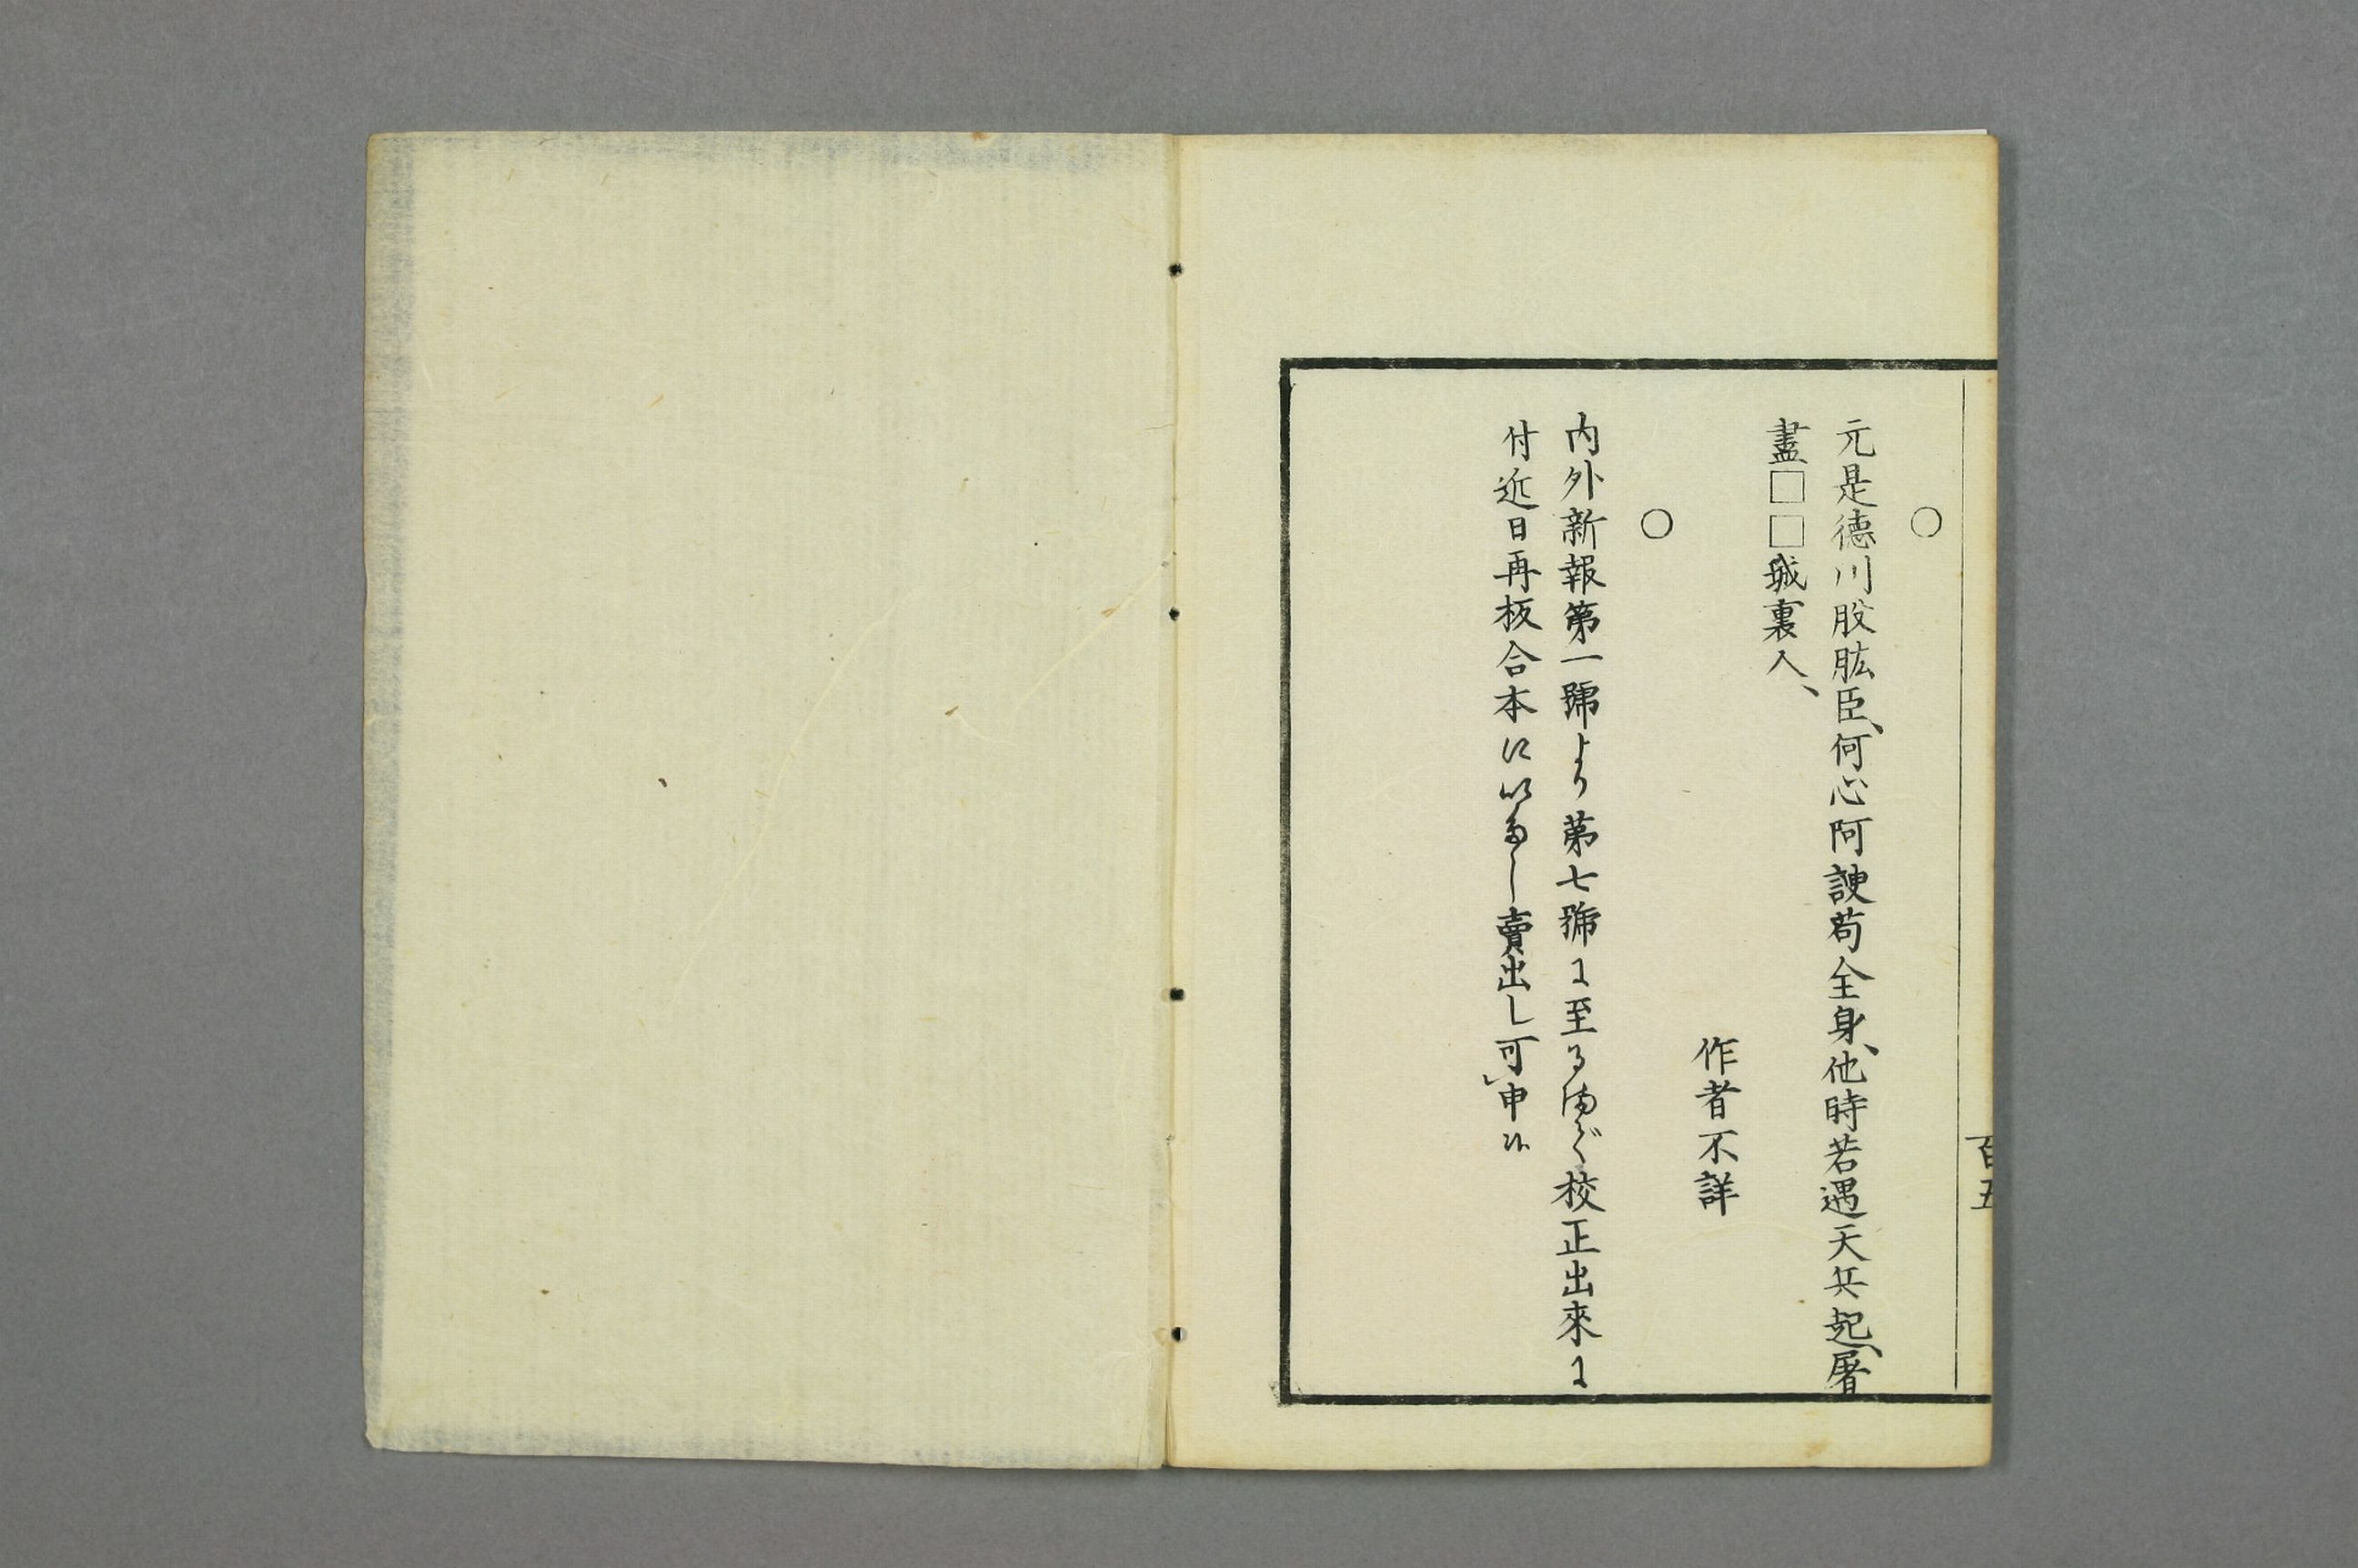 百五
○
元是德川股肱臣、何心阿諛苟全身、他時若遇天兵起、屠
盡□□城裏人、
作者不詳
○
内外新報第一號より第七號に至るまで校正出來に
付近日再板合本にいたし賣出し可申候